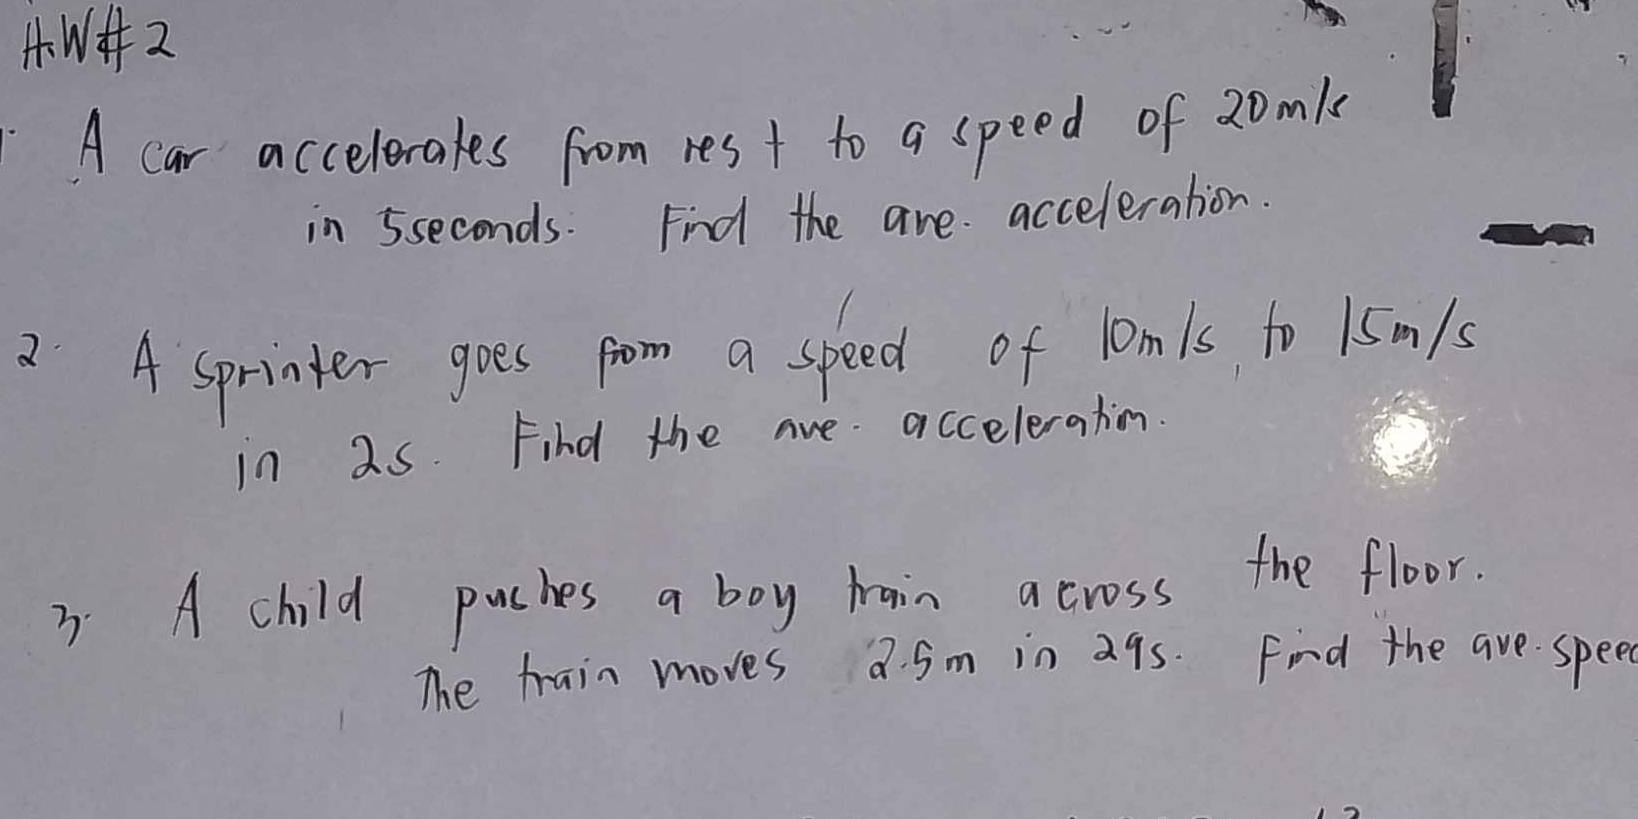 H.W#2
1. A car accelerates from rest to a speed of 20m/s
in 5seconds. Find the ave. acceleration.
2. A sprinter goes from a speed of 10m/s, to 15m/s
in 2s. Find the ave. acceleration.
3. A child puches a boy train across the floor.
The train moves 2.5m in 29s. Find the ave. speed